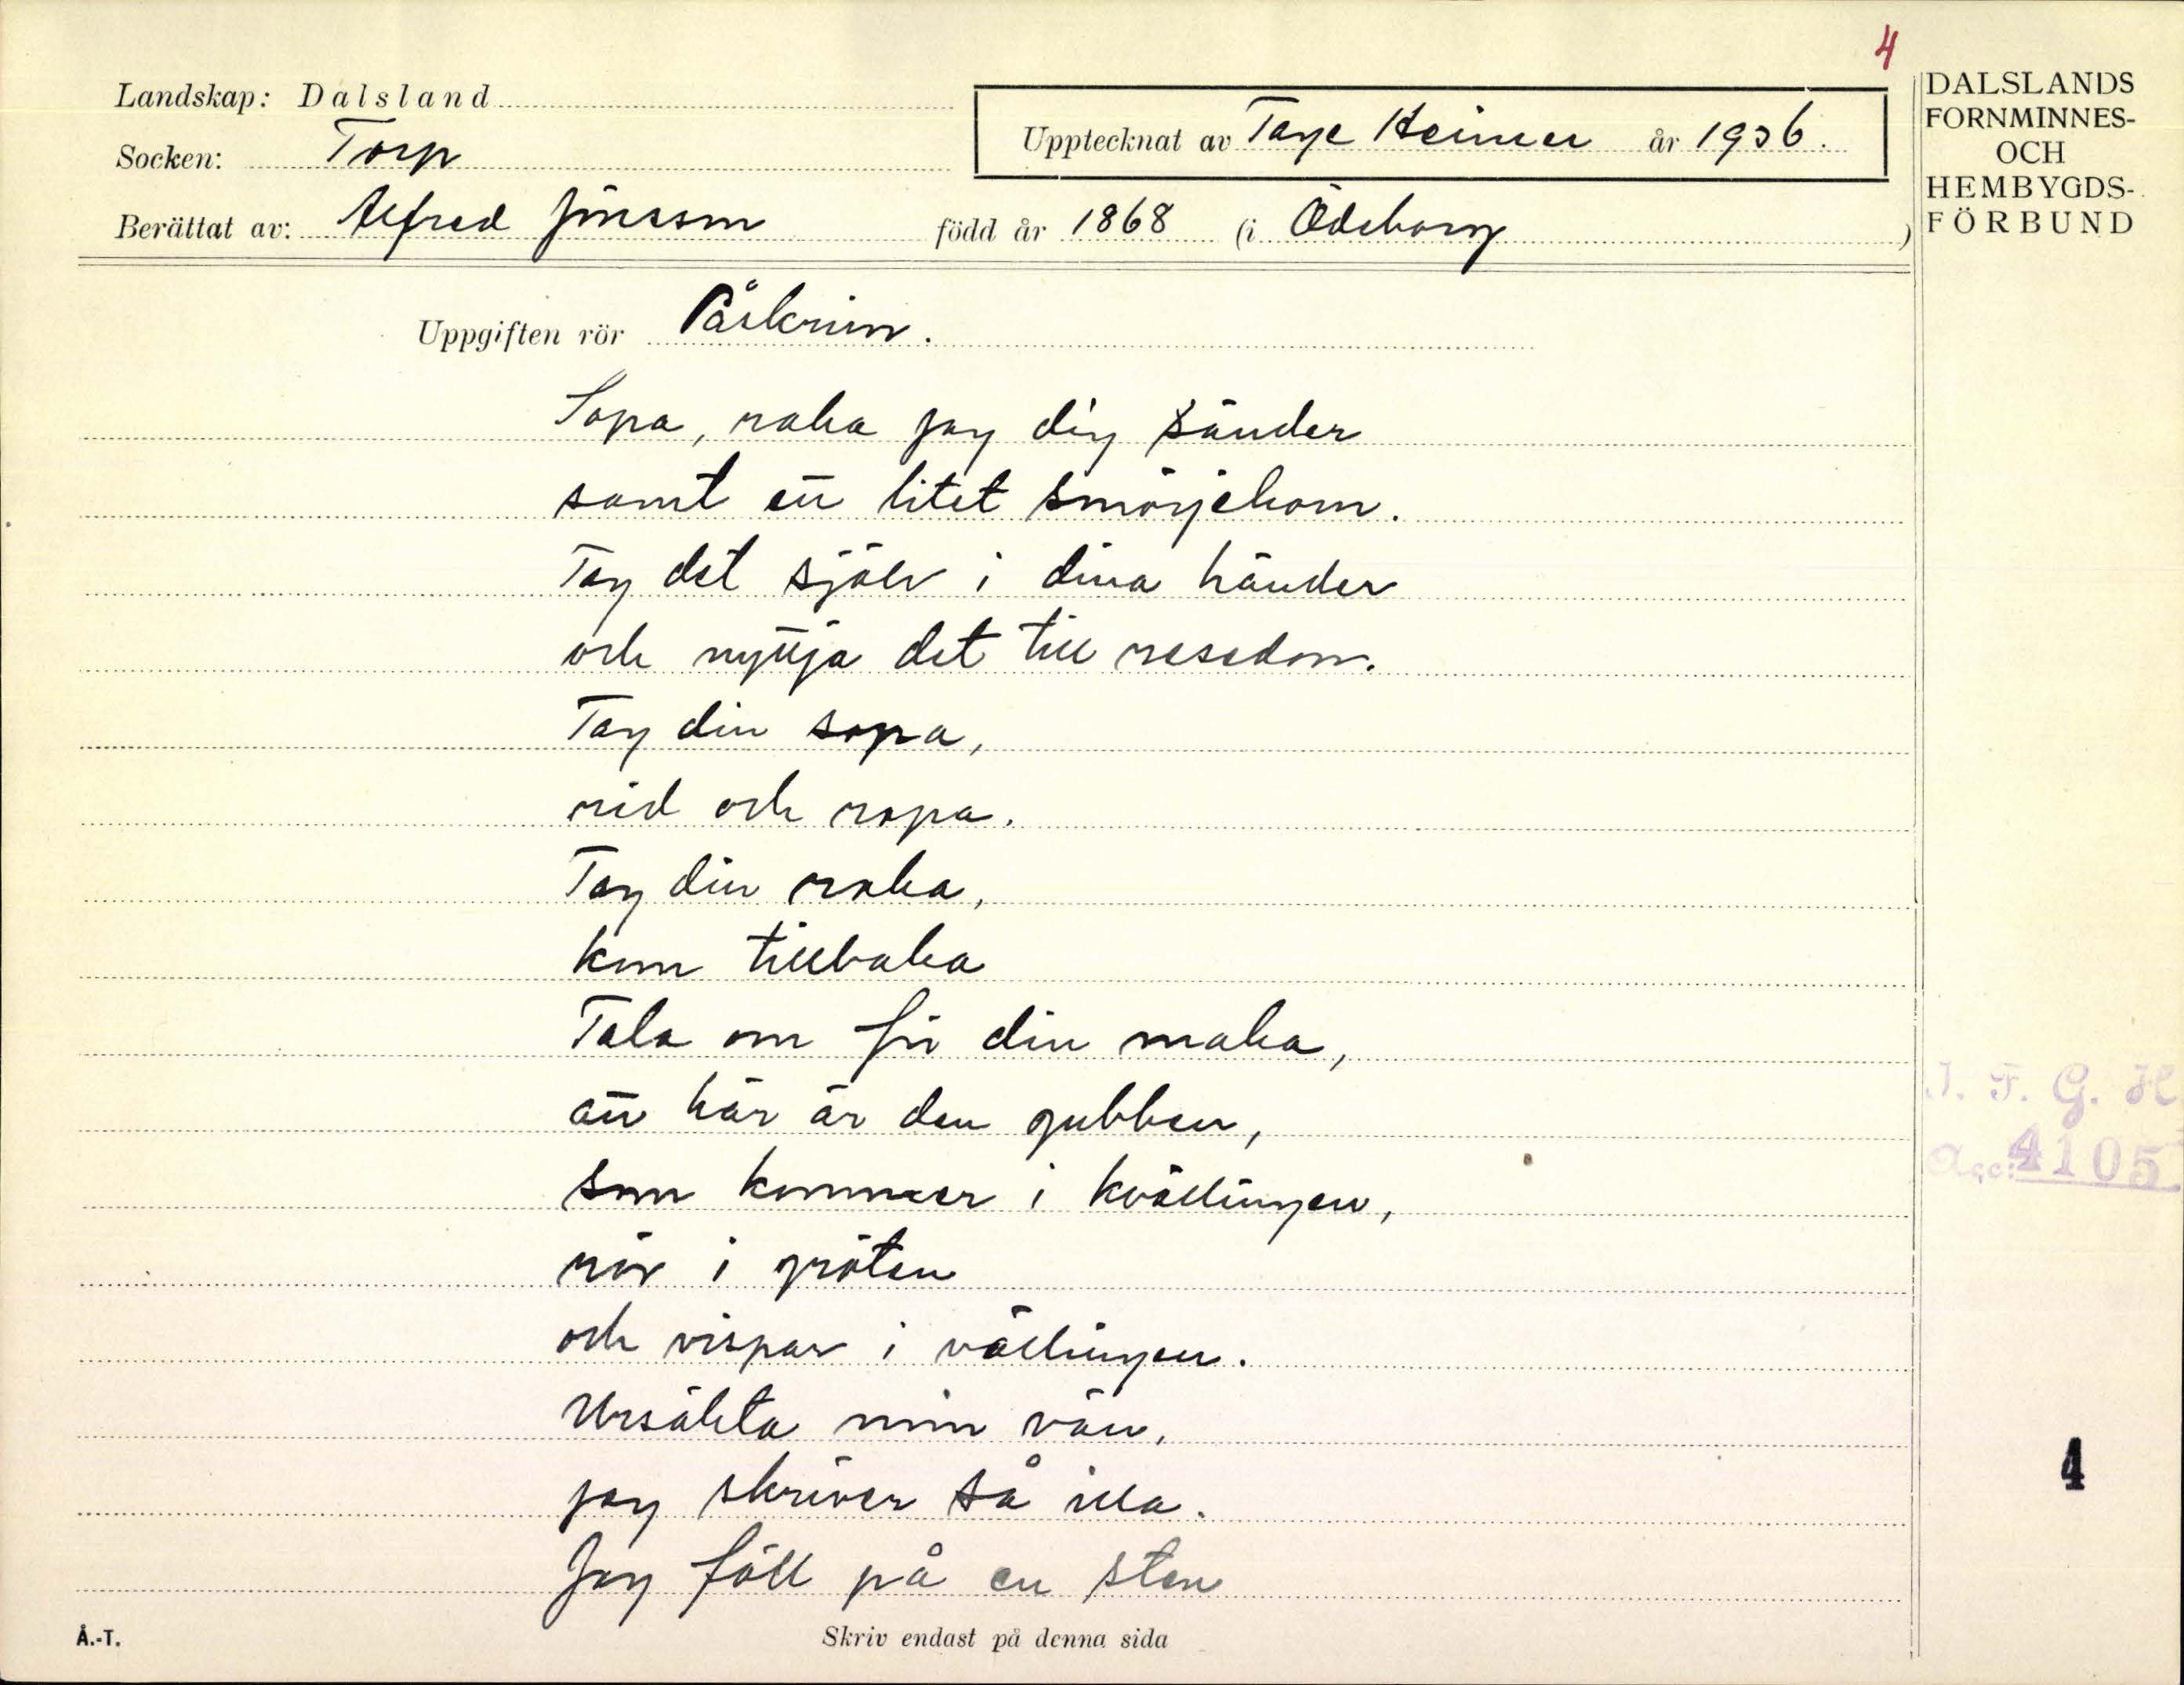 4
Landskap: Dalsland
Upptecknat av Tage Heimer år 1936.
DALSLANDS
FORNMINNES-
OCH
HEMBYGDS-
FÖRBUND
Socken: Torp
Berättat av: Alfred Jönsson född år 1868 (i Ödeborg)
Uppgiften rör Påskrim.
Sopa, raka jag dig sänder
samt ett litet smörjehorn.
Tag det själv i dina händer
och nyttja det till resedon.
Tag din sopa,
rid och ropa.
Tag din raka,
kom tillbaka
Tala om för din maka,
att här är den gubben,
som kommer i kvällingen,
rör i gröten
och vispar i vällingen.
Ursäkta min vän,
jag skriver så illa.
Jag föll på en sten
I. F. G. H
Acc. 4105
4
Å.-T.
Skriv endast på denna sida